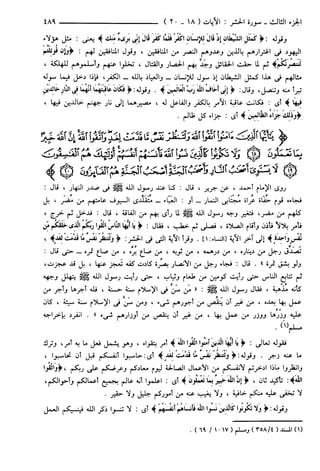 الجزء الثالث - سورة الحشر : الآيات ( ١٨ - ٢٠ ) ٤٨٩
وقوله : ﴿ كَمَثَلِ الشَّيْطَانِ إِذْ قَالَ لِلْإِنسَانِ اكْفُرْ فَلَمَّا كَفَرَ قَالَ إِنِّي بَرِيءٌ مِّنكَ ﴾ يعني : مثل هؤلاء
اليهود في اغترارهم بالذين وعدوهم النصر من المنافقين ، وقول المنافقين لهم : ﴿ وَإِن قُوتِلْتُمْ
لَنَنصُرَنَّكُمْ ﴾ ثم لما حقت الحقائق وجدّ بهم الحصار والقتال ، تخلوا عنهم وأسلموهم للهلكة ،
مثالهم في هذا كمثل الشيطان إذ سول للإنسان - والعياذ بالله - الكفر ، فإذا دخل فيما سوله
تبرأ منه وتنصل، وقال: ﴿ إِنِّي أَخَافُ اللَّهَ رَبَّ الْعَالَمِينَ ﴾ . وقوله: ﴿ فَكَانَ عَاقِبَتَهُمَا أَنَّهُمَا فِي النَّارِ خَالِدَيْنِ
فِيهَا ﴾ أي : فكانت عاقبة الآمر بالكفر والفاعل له ، مصيرهما إلى نار جهنم خالدين فيها ،
﴿ وَذَٰلِكَ جَزَاءُ الظَّالِمِينَ ﴾ أي : جزاء كل ظالم .
يَا أَيُّهَا الَّذِينَ آمَنُوا اتَّقُوا اللَّهَ وَلْتَنظُرْ نَفْسٌ مَّا قَدَّمَتْ لِغَدٍ وَاتَّقُوا اللَّهَ إِنَّ اللَّهَ خَبِيرٌ
بِمَا تَعْمَلُونَ ۝ وَلَا تَكُونُوا كَالَّذِينَ نَسُوا اللَّهَ فَأَنسَاهُمْ أَنفُسَهُمْ أُولَٰئِكَ هُمُ الْفَاسِقُونَ ۝
لَا يَسْتَوِي أَصْحَابُ النَّارِ وَأَصْحَابُ الْجَنَّةِ أَصْحَابُ الْجَنَّةِ هُمُ الْفَائِزُونَ ۝
روى الإمام أحمد ، عن جرير ، قال : كنا عند رسول الله ﷺ في صدر النهار ، قال :
فجاءه قوم حُفَاة عُرَاة مُجتَابي النمار - أو : العَبَاء - مُتَقَلِّدي السيوف عامتهم من مُضَر ، بل
كلهم من مضر، فتغير وجه رسول الله ﷺ لما رأى بهم من الفاقة ، قال : فدخل ثم خرج ،
فأمر بلالًا فأذّن وأقام الصلاة ، فصلى ثم خطب ، فقال : ﴿ يَا أَيُّهَا النَّاسُ اتَّقُوا رَبَّكُمُ الَّذِي خَلَقَكُم مِّن
نَّفْسٍ وَاحِدَةٍ ﴾ إلى آخر الآية [النساء:١] . وقرأ الآية التي في الحشر : ﴿ وَلْتَنظُرْ نَفْسٌ مَّا قَدَّمَتْ لِغَدٍ ﴾،
تَصَدَّق رجل من ديناره ، من درهمه ، من ثوبه ، من صاع بُره ، من صاع تمره - حتى قال :
ولو بشق تمرة » . قال : فجاء رجل من الأنصار بصرة كادت كفه تَعجز عنها ، بل قد عجزت،
ثم تتابع الناس حتى رأيت كومين من طعام وثياب ، حتى رأيت رسول الله ﷺ يتهلل وجهه
كأنه مُذْهبة ، فقال رسول الله ﷺ : « مَن سَنَّ في الإسلام سنة حسنة ، فله أجرها وأجر من
عمل بها بعده ، من غير أن يَنقُص من أجورهم شيء ، ومن سَنَّ في الإسلام سنة سيئة ، كان
عليه وزرُها ووزر من عمل بها ، من غير أن ينقص من أوزارهم شيء » . انفرد بإخراجه
مسلم(١) .
فقوله تعالى : ﴿ يَا أَيُّهَا الَّذِينَ آمَنُوا اتَّقُوا اللَّهَ ﴾ أمر بتقواه ، وهو يشمل فعل ما به أمر، وترك
ما عنه زجر . وقوله: ﴿ وَلْتَنظُرْ نَفْسٌ مَّا قَدَّمَتْ لِغَدٍ ﴾، أي: حاسبوا أنفسكم قبل أن تحاسبوا ،
وانظروا ماذا ادخرتم لأنفسكم من الأعمال الصالحة ليوم معادكم وعرضكم على ربكم ، ﴿ وَاتَّقُوا
اللَّهَ ﴾: تأكيد ثان ، ﴿ إِنَّ اللَّهَ خَبِيرٌ بِمَا تَعْمَلُونَ ﴾ أي : اعلموا أنه عالم بجميع أعمالكم وأحوالكم،
لا تخفى عليه منكم خافية ، ولا يغيب عنه من أموركم جليل ولا حقير .
وقوله: ﴿ وَلَا تَكُونُوا كَالَّذِينَ نَسُوا اللَّهَ فَأَنسَاهُمْ أَنفُسَهُمْ ﴾ أي : لا تنسوا ذكر الله فينسيكم العمل
(١) المسند (٣٥٨/٤) ومسلم (١٠١٧ / ٦٩) .